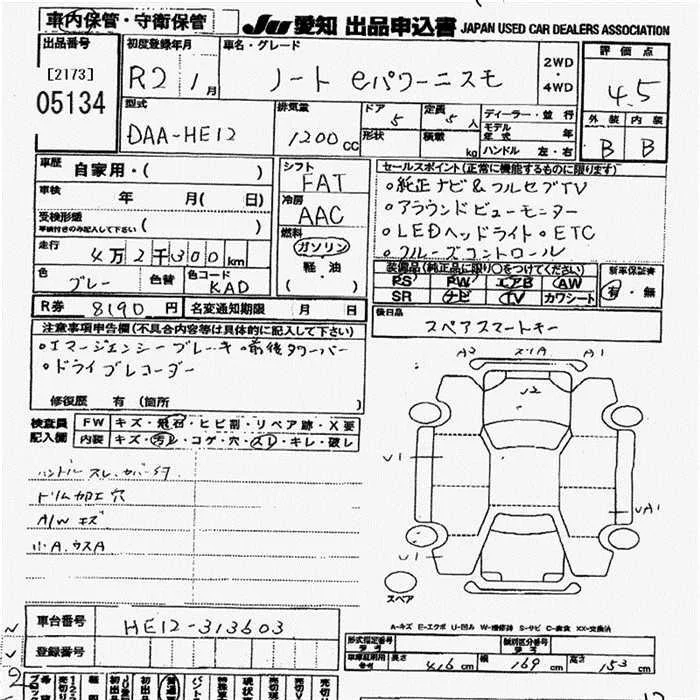 車内保管・守衛保管
JU 愛知 出品申込書 JAPAN USED CAR DEALERS ASSOCIATION
出品番号
[2173]
05134
初度登録年月
R2 1月
車名・グレード
ノート eパワーニスモ
2WD・4WD
評価点
4.5
型式
DAA-HE12
排気量
1200cc
ドア
5
形状
定員
5人
積載
kg
ディーラー・並行
モデル年式 年
ハンドル 左・右
外装 内装
B B
車歴
自家用・( )
車検
年 月( 日)
受検形態
車検付きのみ記入して下さい ( )
走行
4万2千300km
色
グレー
色替
色コード
KAD
シフト
FAT
冷房
AAC
燃料
ガソリン
軽・油
( )
セールスポイント(正常に機能するものに限ります)
○純正ナビ&フルセグTV
○アラウンドビューモニター
○LEDヘッドライト ○ETC
○クルーズコントロール
装備品(純正品に限り〇をつけてください)
PS PW エアB AW
SR ナビ TV カワシート
新車保証書
有・無
R券 8190円
名変通知期限 月 日
後日品
スペアスマートキー
注意事項申告欄(不具合内容等は具体的に記入して下さい)
○エマージェンシーブレーキ ○前後タワーバー
○ドライブレコーダー
修復歴 有(箇所 )
検査員記入欄
FW キズ・飛石・ヒビ割・リペア跡・X要
内装 キズ・汚レ・コゲ・穴・スレ・キレ・破レ
ハンドルスレ、カバーキズ
ドリム加工穴
A/W キズ
小A.ウスA
A2 スリA A1
U2
U1
UA1
U1
スペア
A-キズ E-エクボ U-凹み W-補修跡 S-サビ C-腐食 XX-交換済
車台番号
HE12-313603
登録番号
形式指定番号 参考
類別区分番号 参考
車庫証明用参考 長さ 416cm 幅 169cm 高さ 153cm